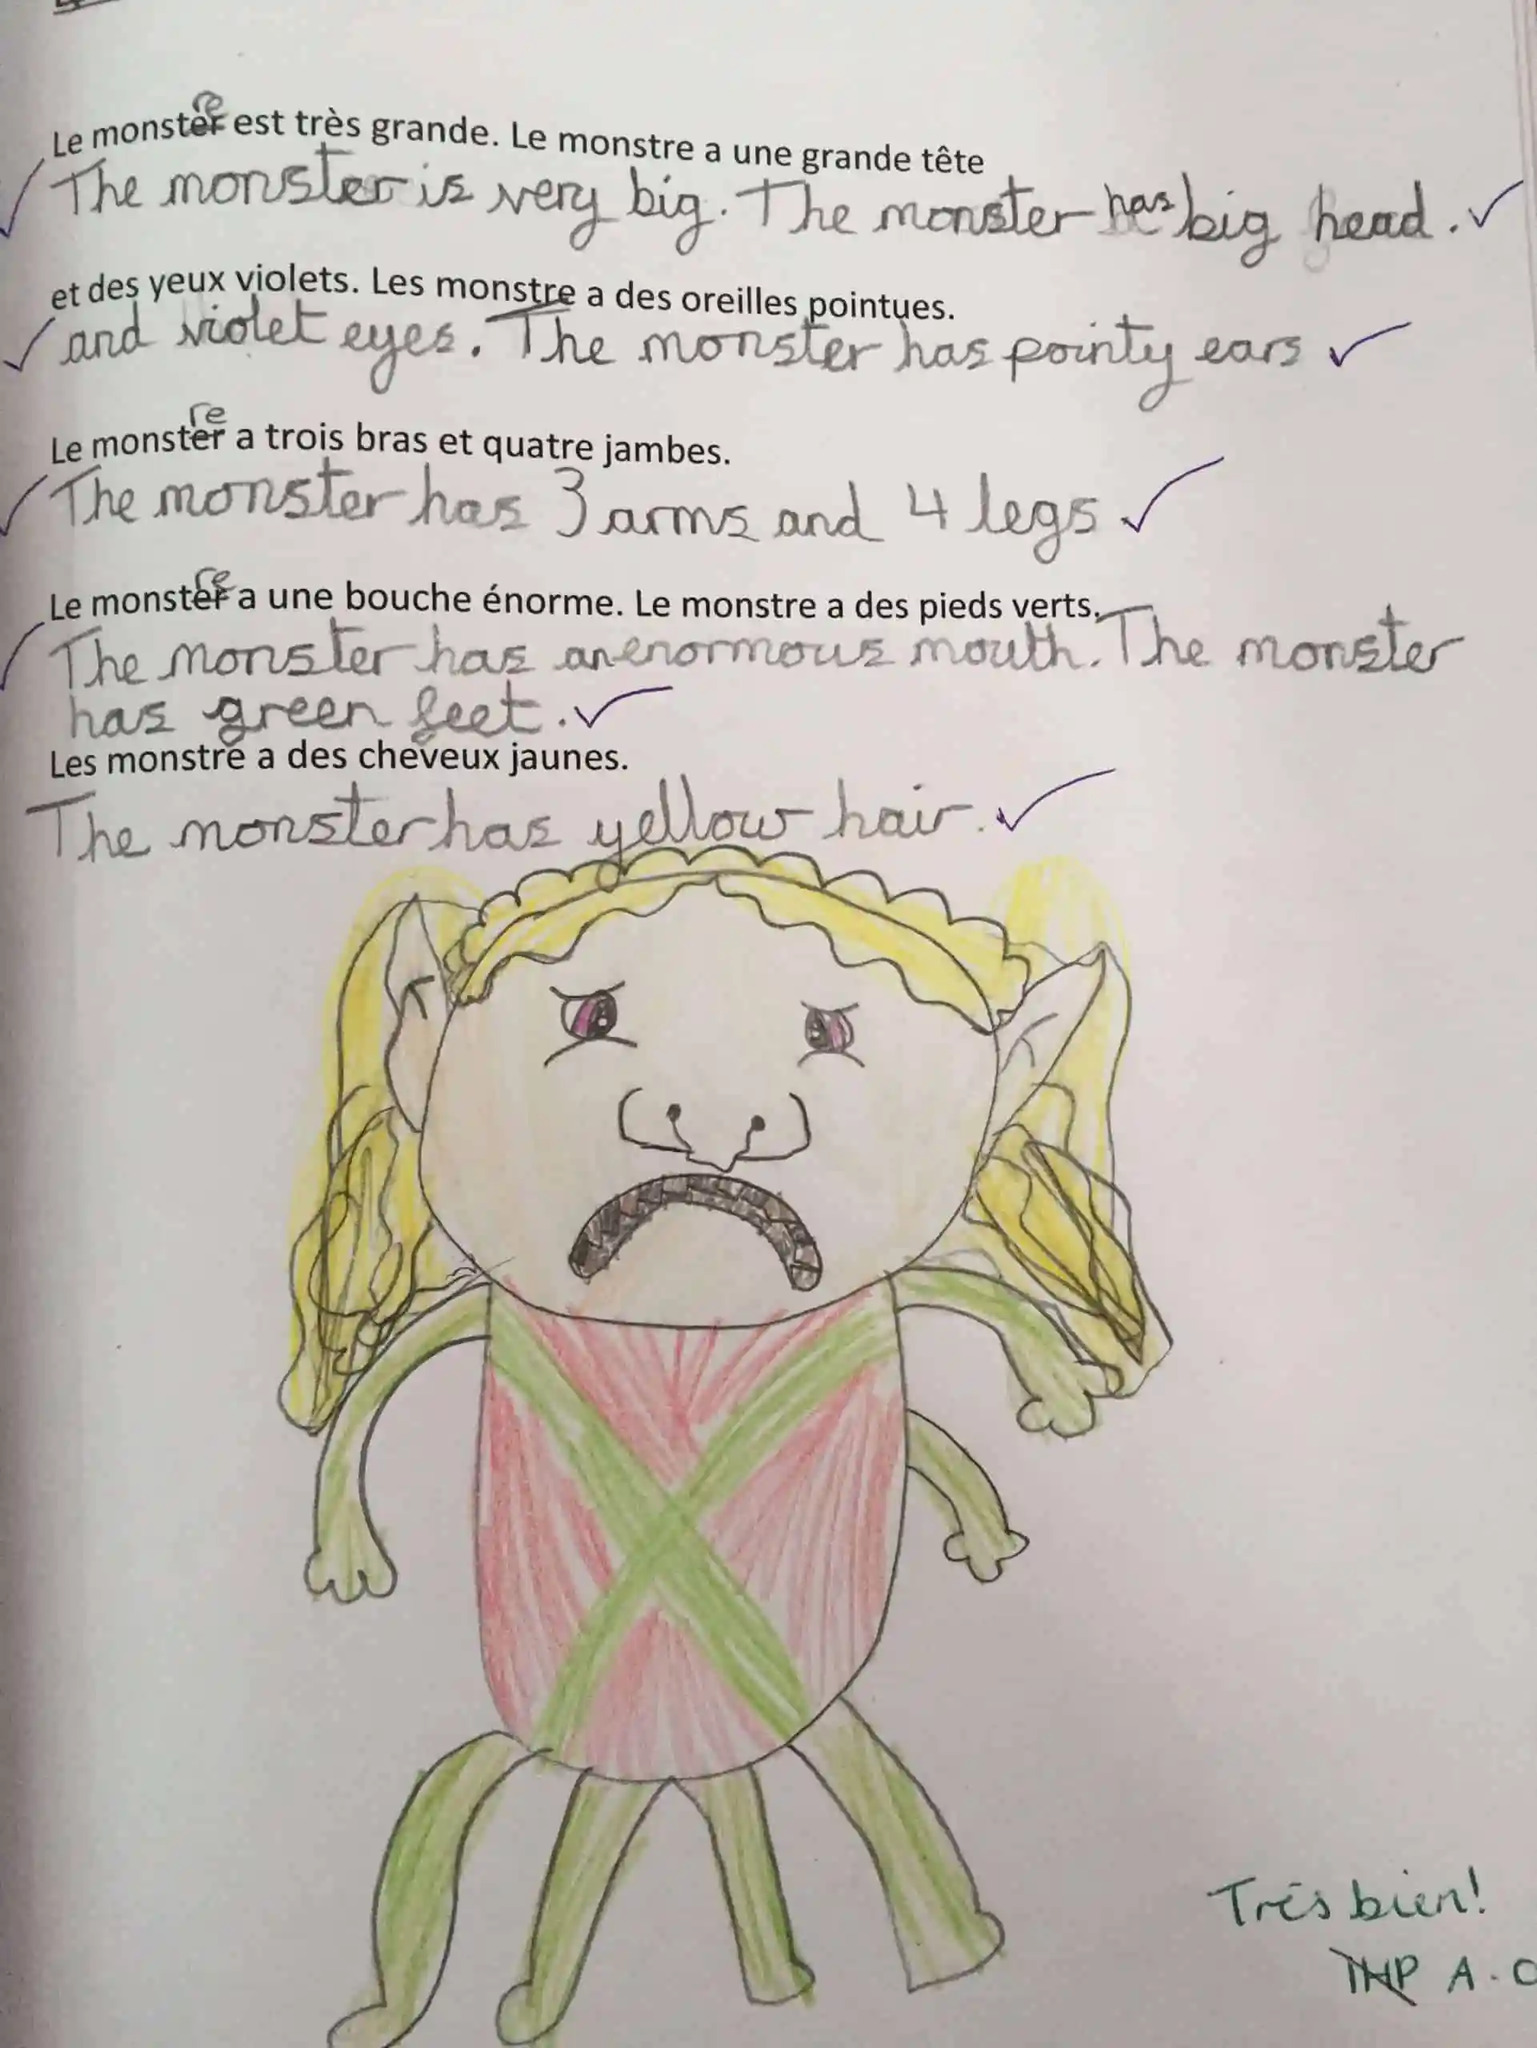 Le monstre est très grande. Le monstre a une grande tête
The monster is very big. The monster has big head.
et des yeux violets. Les monstre a des oreilles pointues.
and violet eyes. The monster has pointy ears
Le monstre a trois bras et quatre jambes.
The monster has 3 arms and 4 legs
Le monstre a une bouche énorme. Le monstre a des pieds verts.
The monster has an enormous mouth. The monster
has green feet.
Les monstre a des cheveux jaunes.
The monster has yellow hair.
Très bien!
A.